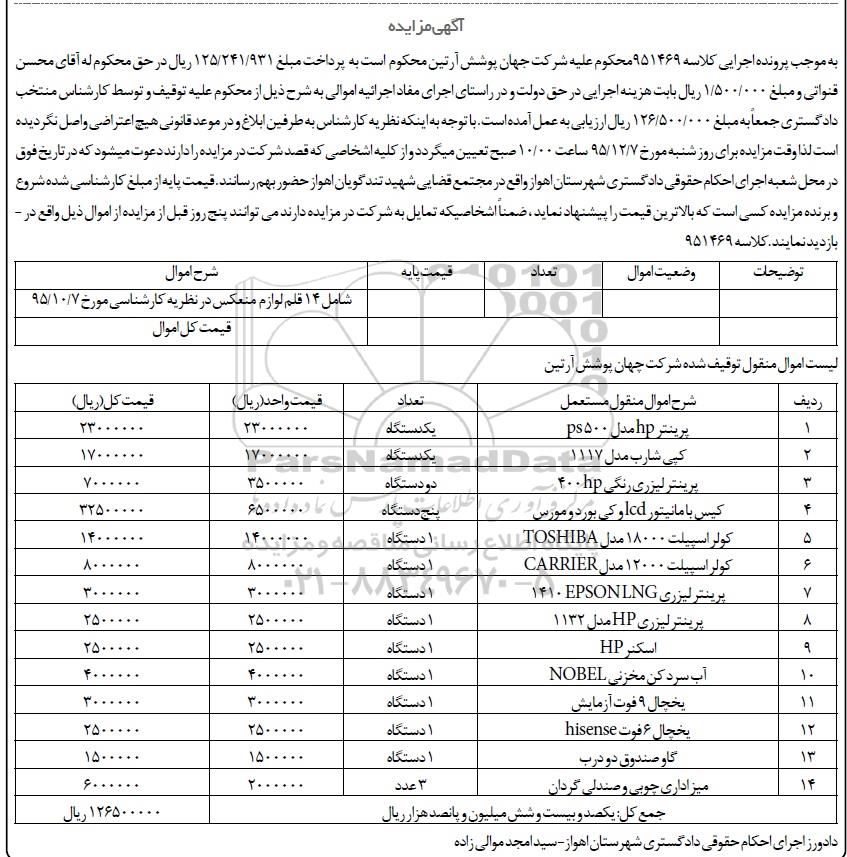 آگهی مزایده
به موجب پرونده اجرایی کلاسه ۹۵۱۴۶۹محکوم علیه شرکت جهان پوشش آرتین محکوم است به پرداخت مبلغ ۱۲۵/۲۴۱/۹۳۱ ریال در حق محکوم له آقای محسن
قنواتی و مبلغ ۱/۵۰۰/۰۰۰ ریال بابت هزینه اجرایی در حق دولت و در راستای اجرای مفاد اجرائیه اموالی به شرح ذیل از محکوم علیه توقیف و توسط کارشناس منتخب
دادگستری جمعاً به مبلغ ۱۲۶/۵۰۰/۰۰۰ ریال ارزیابی به عمل آمده است. با توجه به اینکه نظریه کارشناس به طرفین ابلاغ و در موعد قانونی هیچ اعتراضی واصل نگردیده
است لذا وقت مزایده برای روز شنبه مورخ ۹۵/۱۲/۷ ساعت ۱۰/۰۰ صبح تعیین میگردد و از کلیه اشخاصی که قصد شرکت در مزایده را دارند دعوت میشود که در تاریخ فوق
در محل شعبه اجرای احکام حقوقی دادگستری شهرستان اهواز واقع در مجتمع قضایی شهید تندگویان اهواز حضور بهم رسانند. قیمت پایه از مبلغ کارشناسی شده شروع
و برنده مزایده کسی است که بالاترین قیمت را پیشنهاد نماید ، ضمناً اشخاصیکه تمایل به شرکت در مزایده دارند می توانند پنج روز قبل از مزایده از اموال ذیل واقع در -
بازدید نمایند. کلاسه ۹۵۱۴۶۹
توضیحات وضعیت اموال تعداد قیمت پایه شرح اموال
شامل ۱۴ قلم لوازم منعکس در نظریه کارشناسی مورخ ۹۵/۱۰/۷
قیمت کل اموال
لیست اموال منقول توقیف شده شرکت جهان پوشش آرتین
ردیف شرح اموال منقول مستعمل تعداد قیمت واحد(ریال) قیمت کل(ریال)
۱ پرینتر hp مدل ps ۵۰۰ یکدستگاه ۲۳۰۰۰۰۰۰ ۲۳۰۰۰۰۰۰
۲ کپی شارب مدل ۱۱۱۷ یکدستگاه ۱۷۰۰۰۰۰۰ ۱۷۰۰۰۰۰۰
۳ پرینتر لیزری رنگی ۴۰۰hp دو دستگاه ۳۵۰۰۰۰۰ ۷۰۰۰۰۰۰
۴ کیس با مانیتور lcd و کی بورد و موزس پنج دستگاه ۶۵۰۰۰۰۰ ۳۲۵۰۰۰۰۰
۵ کولر اسپیلت ۱۸۰۰۰ مدل TOSHIBA ۱ دستگاه ۱۴۰۰۰۰۰۰ ۱۴۰۰۰۰۰۰
۶ کولر اسپیلت ۱۲۰۰۰ مدل CARRIER ۱ دستگاه ۸۰۰۰۰۰۰ ۸۰۰۰۰۰۰
۷ پرینتر لیزری EPSON LNG ۱۴۱۰ ۱ دستگاه ۳۰۰۰۰۰۰ ۳۰۰۰۰۰۰
۸ پرینتر لیزری HP مدل ۱۱۳۲ ۱ دستگاه ۲۵۰۰۰۰۰ ۲۵۰۰۰۰۰
۹ اسکنر HP ۱ دستگاه ۲۵۰۰۰۰۰ ۲۵۰۰۰۰۰
۱۰ آب سرد کن مخزنی NOBEL ۱ دستگاه ۴۰۰۰۰۰۰ ۴۰۰۰۰۰۰
۱۱ یخچال ۹ فوت آزمایش ۱ دستگاه ۳۰۰۰۰۰۰ ۳۰۰۰۰۰۰
۱۲ یخچال ۶ فوت hisense ۱ دستگاه ۲۵۰۰۰۰۰ ۲۵۰۰۰۰۰
۱۳ گاو صندوق دو درب ۱ دستگاه ۱۵۰۰۰۰۰ ۱۵۰۰۰۰۰
۱۴ میز اداری چوبی و صندلی گردان ۳ عدد ۲۰۰۰۰۰۰ ۶۰۰۰۰۰۰
جمع کل: یکصد و بیست و شش میلیون و پانصد هزار ریال ۱۲۶۵۰۰۰۰۰ ریال
دادورز اجرای احکام حقوقی دادگستری شهرستان اهواز-سید امجد موالی زاده
ParsNamadData
پایگاه اطلاع رسانی مناقصه و مزایده
۰۲۱-۸۸۳۴۹۶۷۰-۵